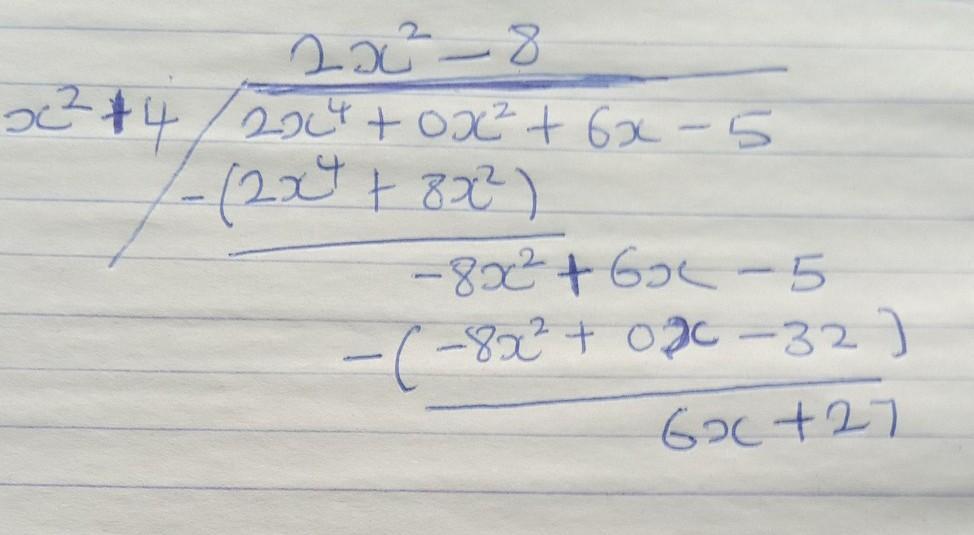 2x² - 8
x² + 4 / 2x⁴ + 0x² + 6x - 5
-(2x⁴ + 8x²)
-8x² + 6x - 5
-(-8x² + 0x - 32)
6x + 27